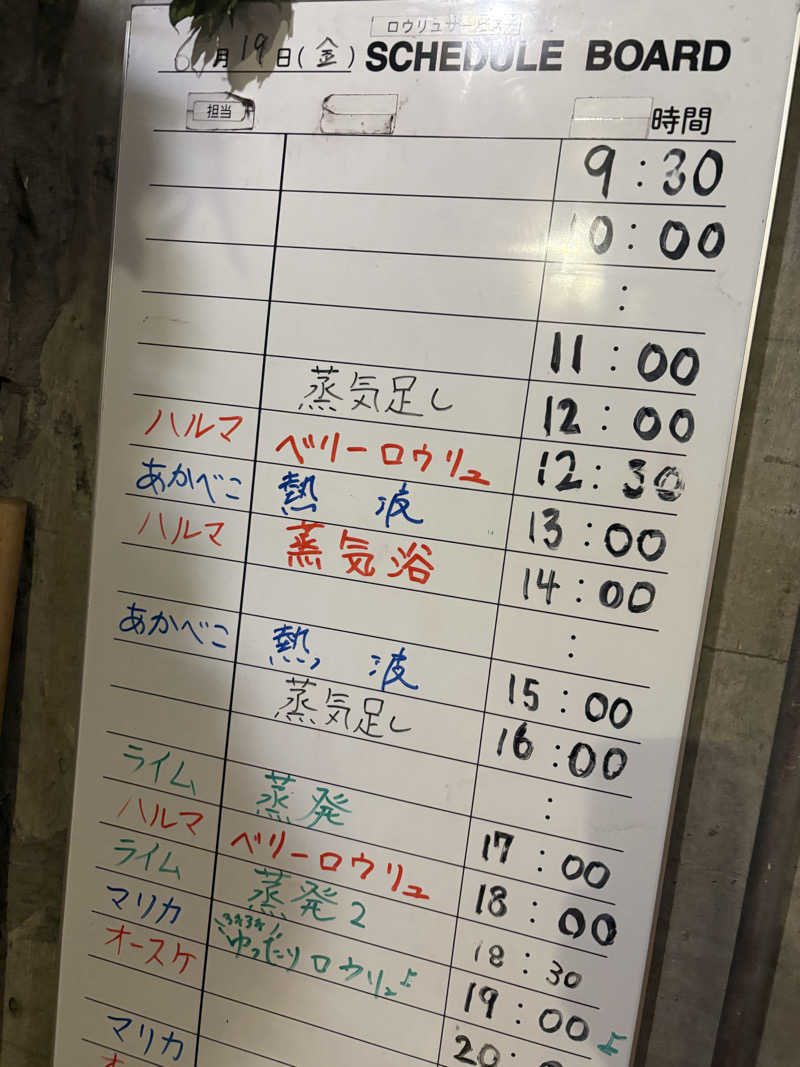 ロウリュサービス
6月19日(金) SCHEDULE BOARD
担当 時間
9:30
10:00
:
11:00
蒸気足し 12:00
ハルマ ベリーロウリュ 12:30
あかべこ 熱 波 13:00
ハルマ 蒸気浴 14:00
:
あかべこ 熱 波 15:00
蒸気足し 16:00
:
ライム 蒸発 17:00
ハルマ ベリーロウリュ 18:00
ライム 蒸発2 18:30
マリカ ゆったりロウリュ♪ 19:00♪
オースケ 20:
マリカ